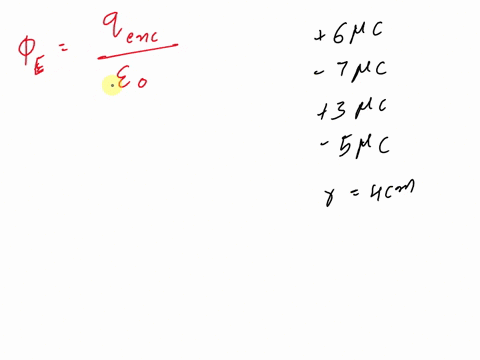 Φ_E = q_enc / ε_0
+6 μC
- 7 μC
+3 μC
- 5 μC
r = 4cm